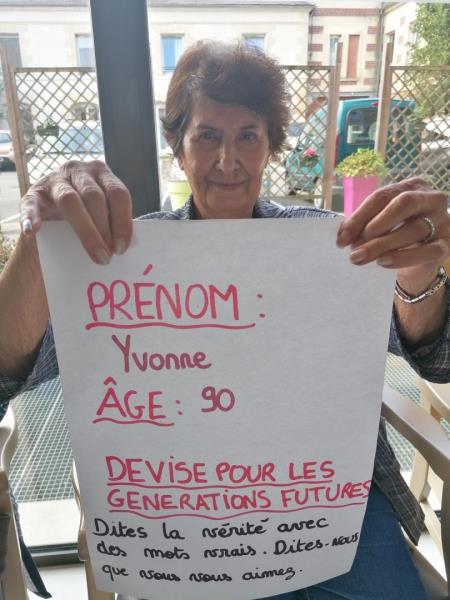 PRÉNOM :
Yvonne
ÂGE : 90
DEVISE POUR LES
GENERATIONS FUTURES
Dites la vérité avec
des mots vrais. Dites-vous
que vous vous aimez.